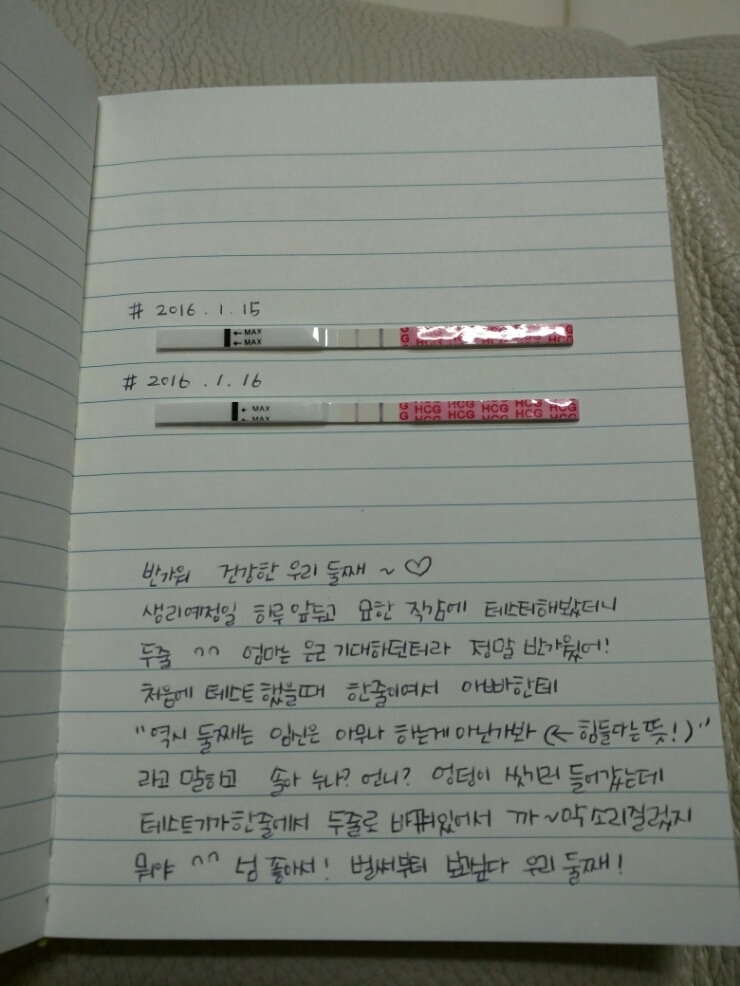 # 2016.1.15
← MAX
← MAX
HCG HCG HCG HCG HCG
# 2016.1.16
← MAX
← MAX
HCG HCG HCG HCG HCG
반가워 건강한 우리 둘째 ~ ♡
생리예정일 하루 앞두고 묘한 직감에 테스터해봤더니
두줄 ^^ 엄마는 은근 기대하던터라 정말 반가웠어!
처음에 테스트 했을때 한줄이여서 아빠한테
"역시 둘째는 임신은 아무나 하는게 아닌가봐 (← 힘들다는 뜻!)"
라고 말하고 솔아 누나? 언니? 엉덩이 씻기러 들어갔는데
테스트기가 한줄에서 두줄로 바껴있어서 까~악 소리질렀지
뭐야 ^^ 넘 좋아서! 벌써부터 보고싶다 우리 둘째!